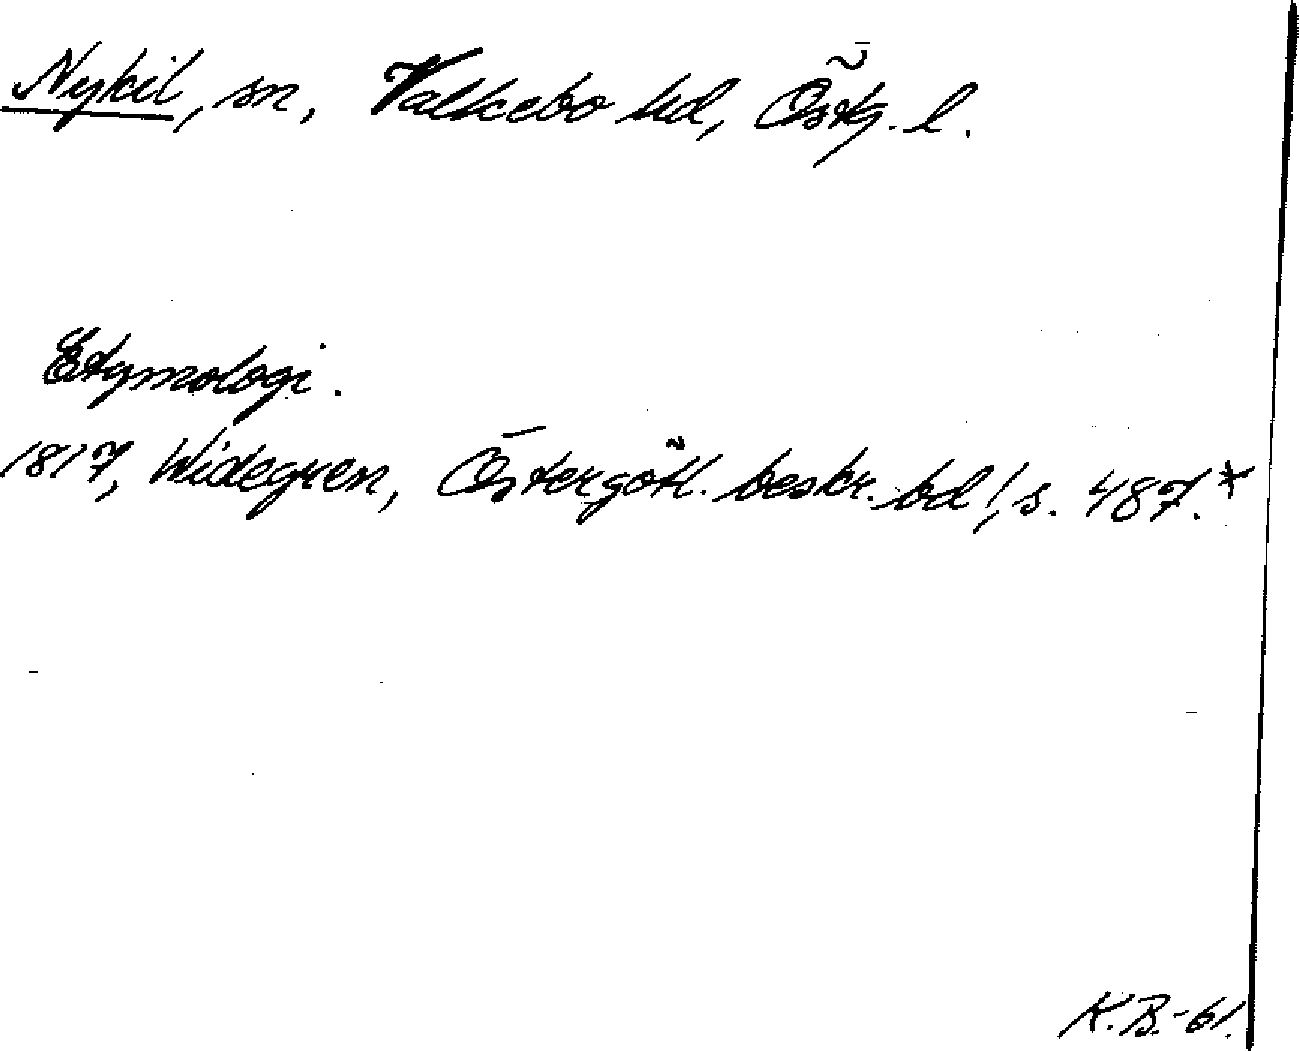 Nykil, sn, Valkebo hd, Östg. l.
Etymologi.
1817, Widegren, Östergötl. beskr. bd 1, s. 487.*
K.B.-61.